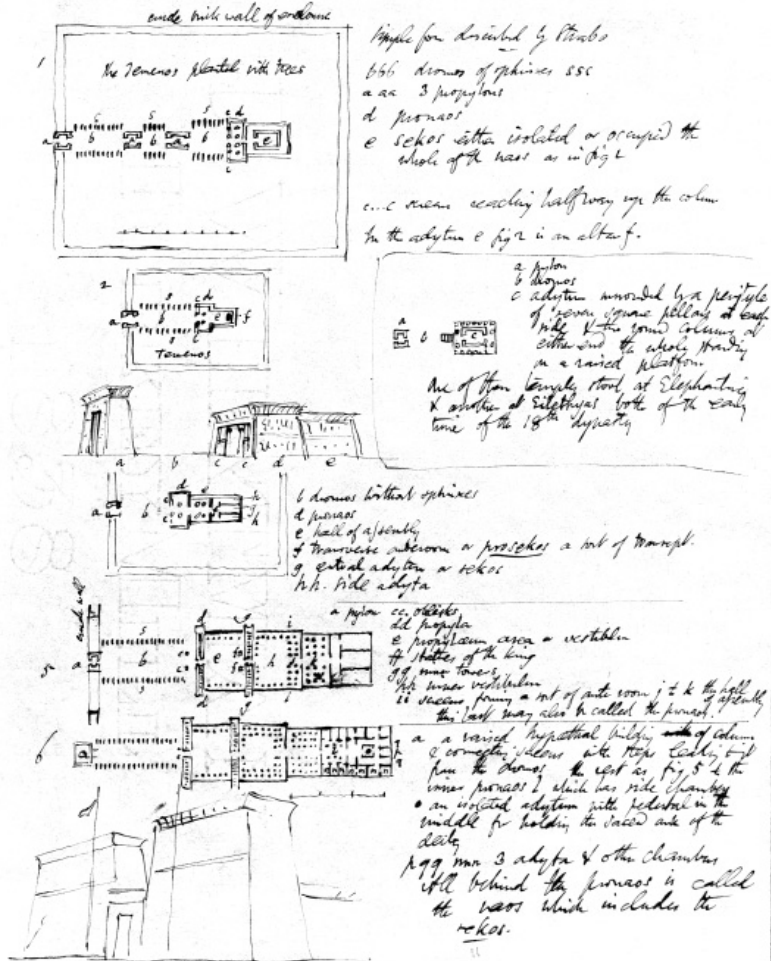 crude brick wall of enclosure
1
the Temenos planted with trees
s s s
a b b a b c d e
c
Temple form described by Strabo
bbb dromos of sphinxes sss
a aa 3 propylons
d pronaos
e sekos either isolated or occupied the
whole of the naos as in fig 2
c...c screens reaching halfway up the column
In the adytum e fig 2 is an altar f.
2
s c d
a b e f
s c
Temenos
a pylon
b dromos
c adytum surrounded by a peristyle
of seven square pillars at each
side & two round columns at
either end the whole standing
on a raised platform
One of these temples stood at Elephantine
& another at Eilethyas both of the early
time of the 18th dynasty
a b c
a b c c d e
d e h
a b c g
c h
b dromos without sphinxes
d pronaos
e hall of assembly
f transverse anteroom or prosekos a sort of transept.
g central adytum or sekos
hh. side adyta
5
crude wall
s d g i
a b c e f h k
s d g i
a pylon cc. obelisks
dd propyla
e propylaeum area or vestibule
ff statues of the king
gg towers
hh inner vestibule
ii screens forming a sort of ante room j to k the hall of assembly
this last may also be called the pronaos.
6
a
a a raised hypaethral building of columns
& connecting screens with steps leading to it
from the dromos the rest as fig 5 to the
inner pronaos l which has side chambers
o an isolated adytum with pedestal in the
middle for holding the sacred ark of the
deity
pqq 3 adyta & other chambers
All behind the pronaos is called
the naos which includes the
sekos.